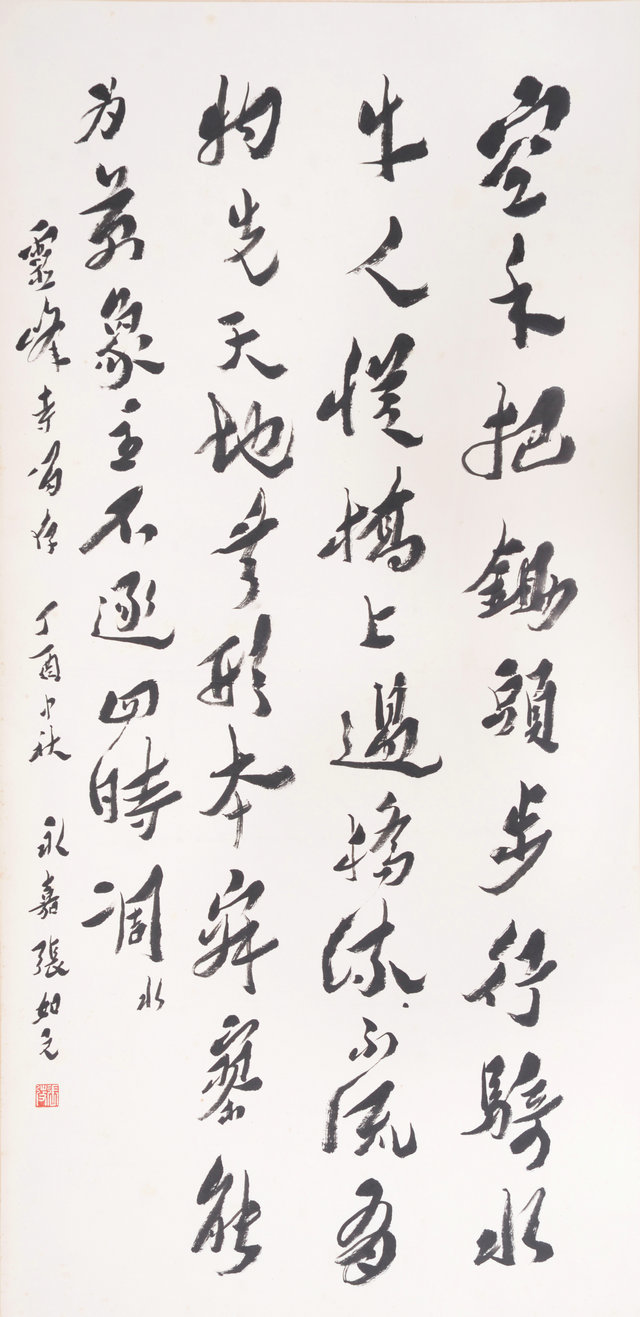 空手把鋤頭步行騎水
牛人從橋上過橋流不流有
物先天地無形本寂寥能
為萬象主不逐四時凋 水
靈峰寺留存 丁酉中秋 永嘉張如元